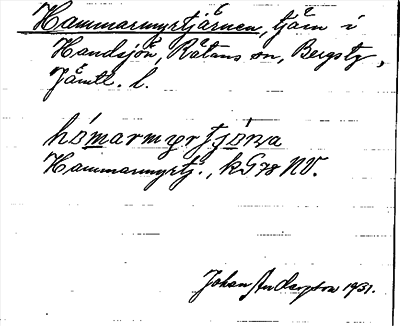 Hammarmyrtjärnen, tjärn i
Handsjön, Rätans sn, Bergs tg,
Jämtl. l.
hómarmyrtjóṇa
Hammarmyrtj., kG 78 NV.
Johan Anderson 1931.